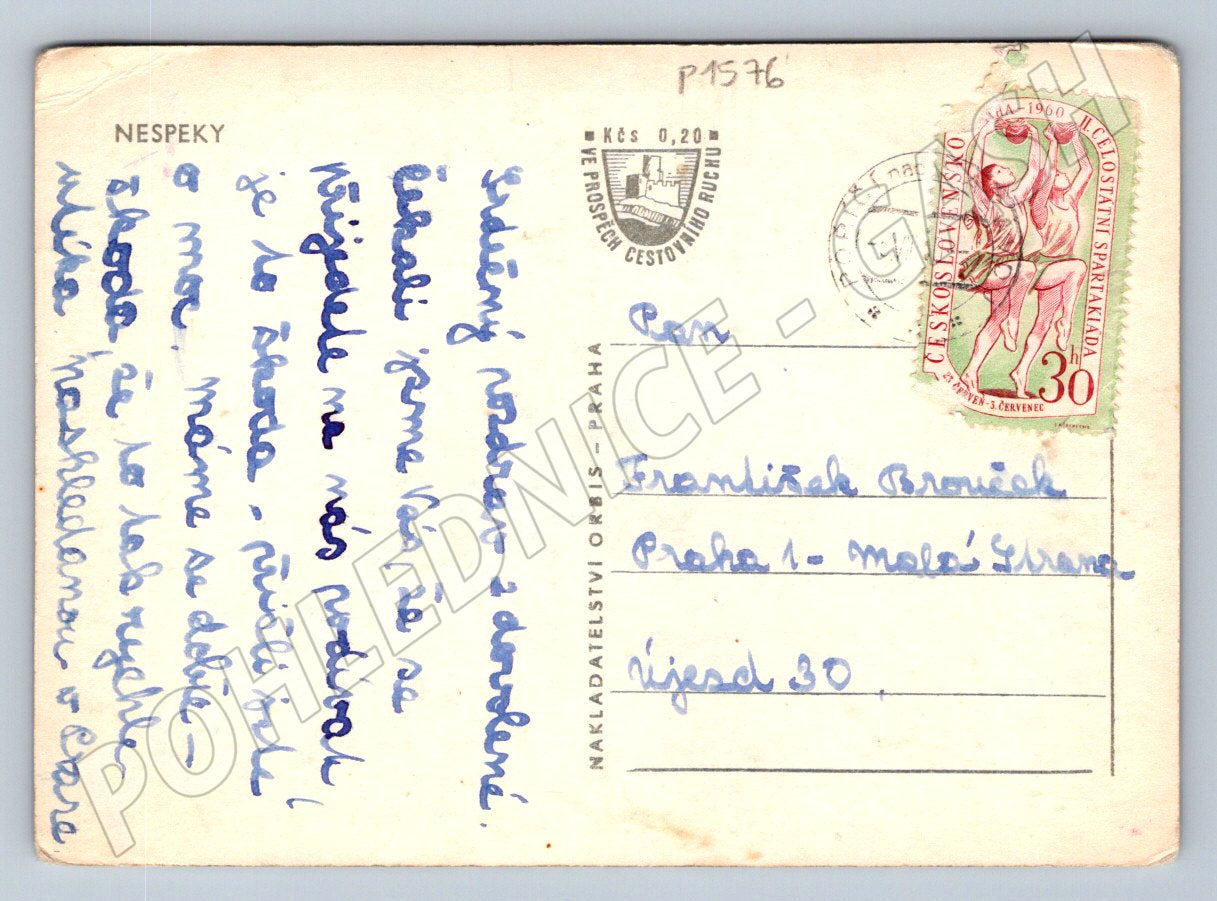 P1576
NESPEKY
Kčs 0,20
VE PROSPĚCH CESTOVNÍHO RUCHU
ČESKOSLOVENSKO
HA - 1960
II. CELOSTÁTNÍ SPARTAKIÁDA
23. ČERVEN - 3. ČERVENEC
30 h
Srdečný pozdrav z dovolené.
Čekali jsme Vás, že se
přijedete na nás podívat
je to škoda - přišli jste
o moc. Máme se dobře -
škoda že to tak rychle
utíká Naskledanou v
Pan
František Brouček
Praha 1 - Malá Strana
Újezd 30
NAKLADATELSTVÍ ORBIS - PRAHA
POHLEDNICE - GASH